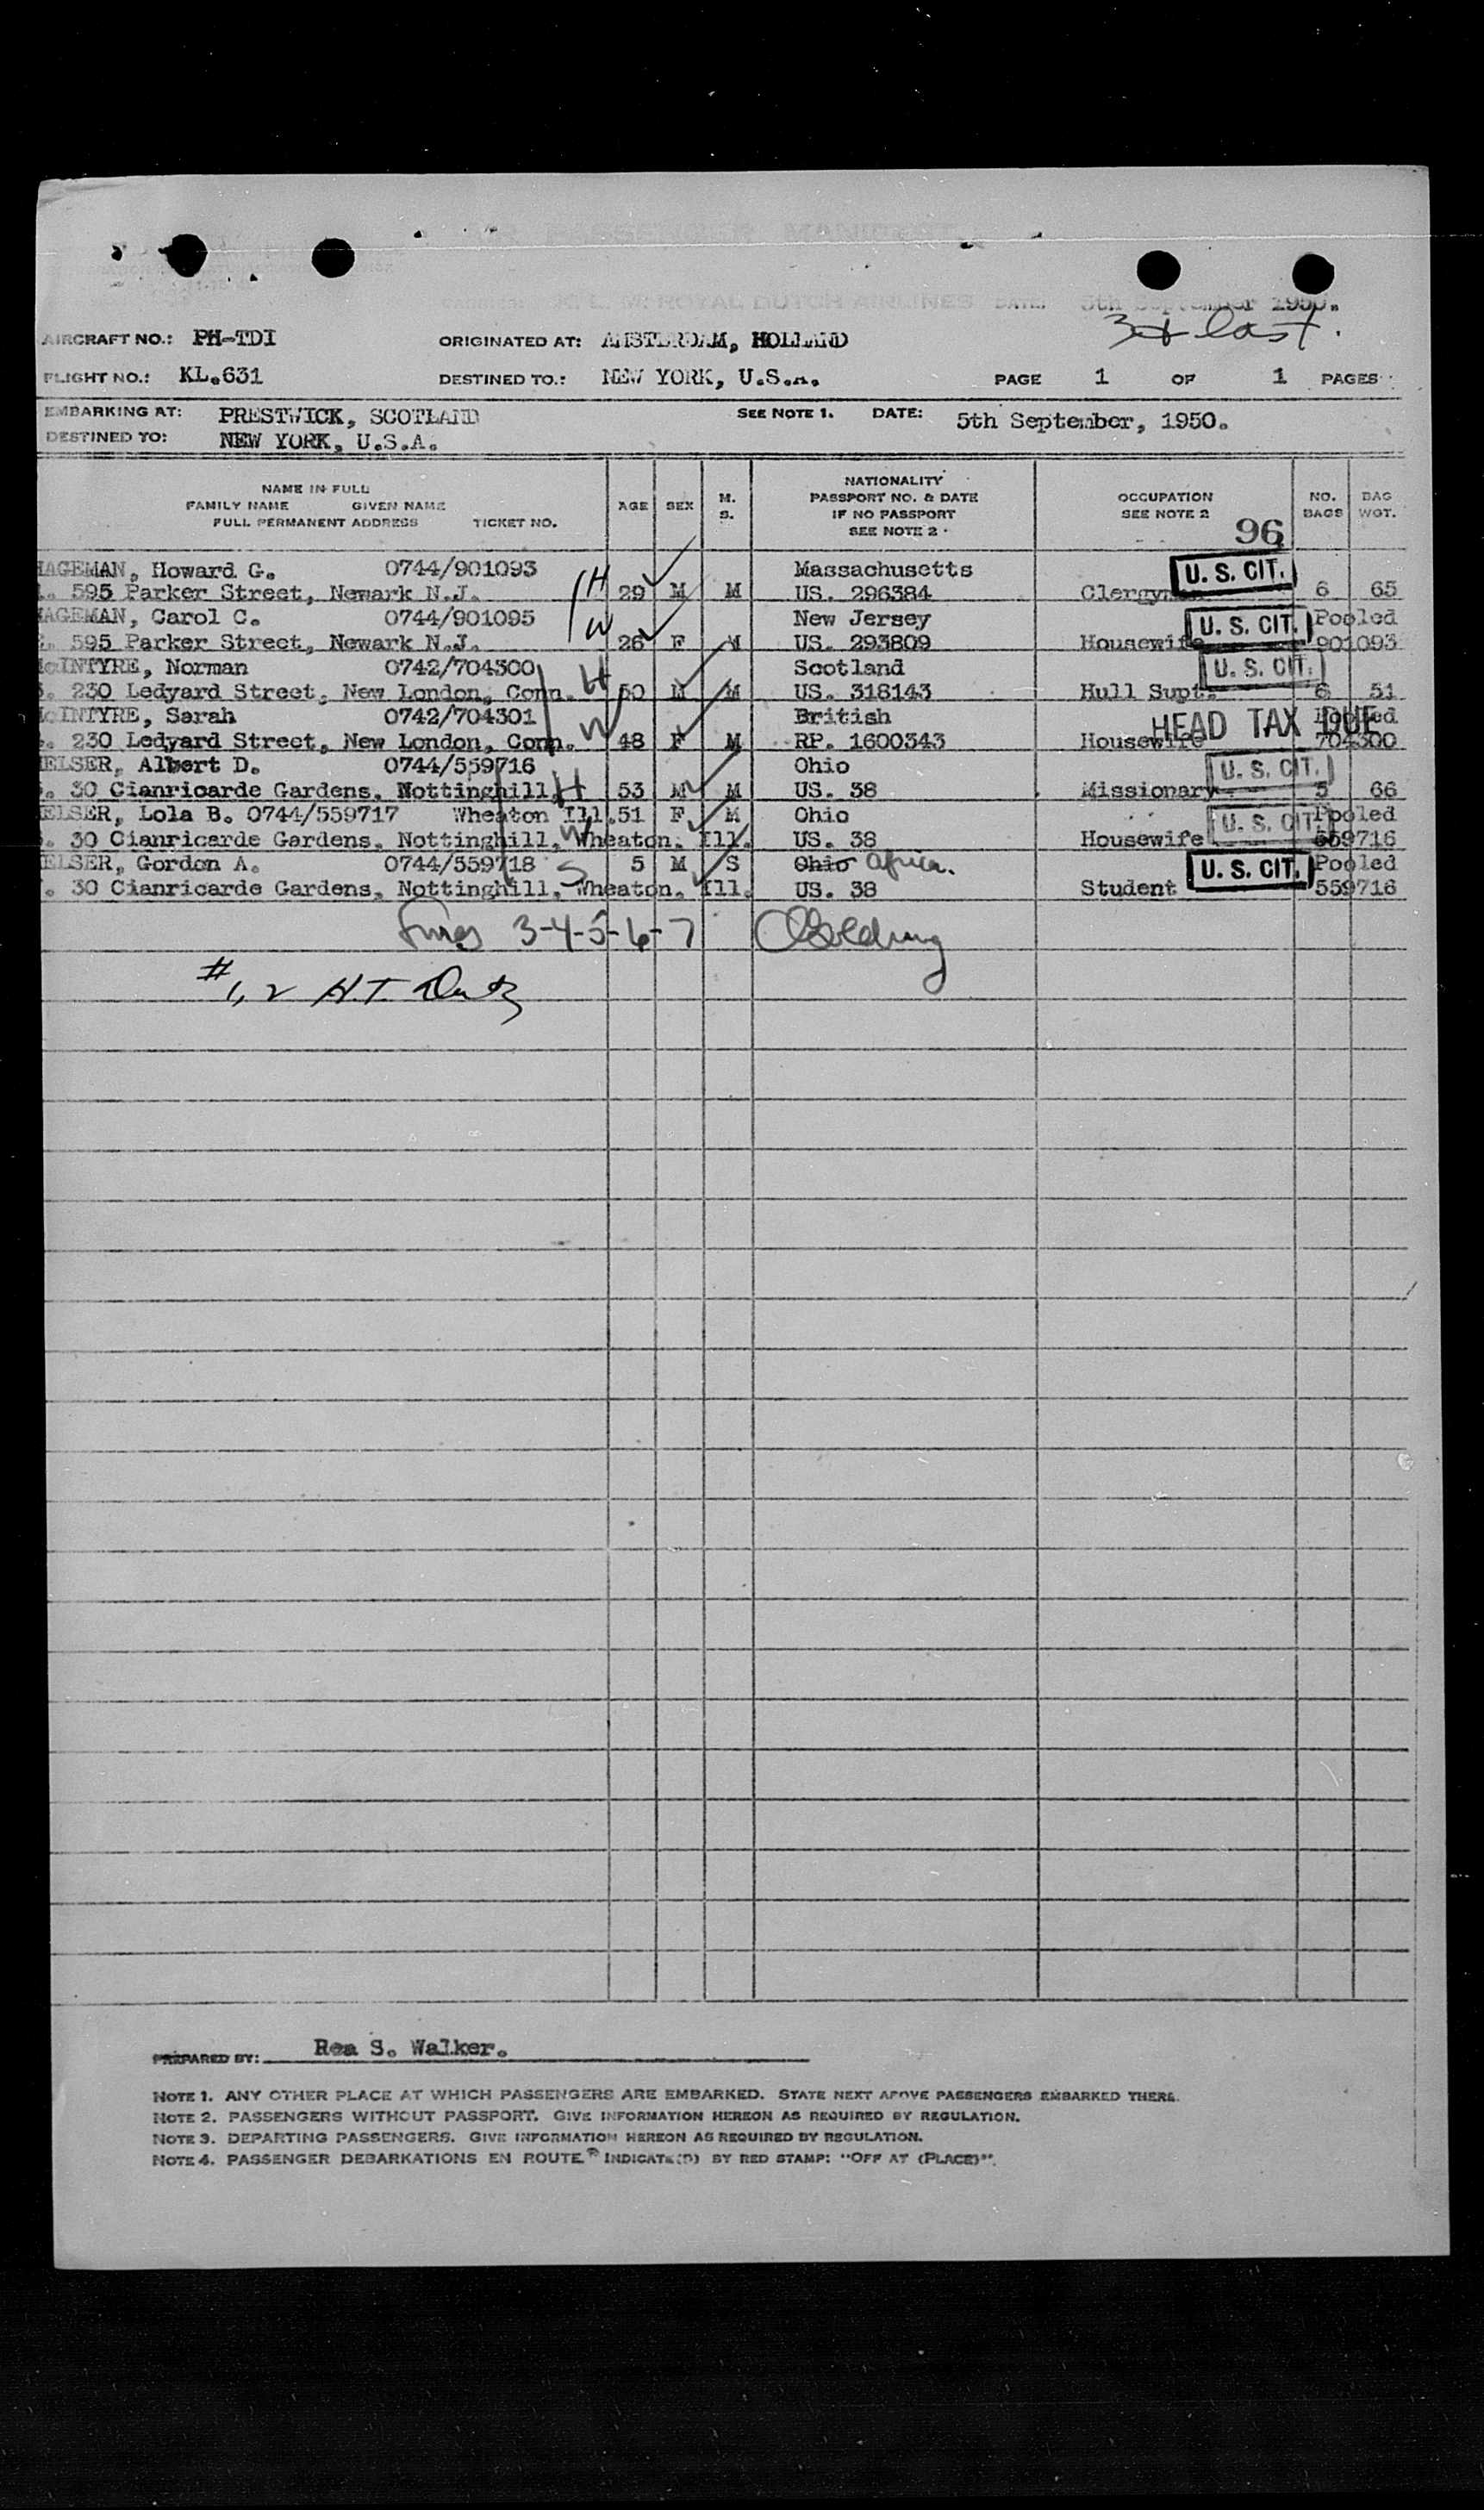 K.L.M. ROYAL DUTCH AIRLINES DATE: 5th September 1950.
3d & last.
AIRCRAFT NO.: PH-TDI ORIGINATED AT: AMSTERDAM, HOLLAND
FLIGHT NO.: KL.631 DESTINED TO.: NEW YORK, U.S.A. PAGE 1 OF 1 PAGES
EMBARKING AT: PRESTWICK, SCOTLAND SEE NOTE 1. DATE: 5th September, 1950.
DESTINED TO: NEW YORK, U.S.A.
NAME IN FULL
FAMILY NAME GIVEN NAME
FULL PERMANENT ADDRESS TICKET NO.
AGE SEX M. S.
NATIONALITY
PASSPORT NO. & DATE
IF NO PASSPORT
SEE NOTE 2
OCCUPATION
SEE NOTE 2
96
NO. BAGS
BAG WGT.
HAGEMAN, Howard G. 0744/901093 Massachusetts U. S. CIT.
595 Parker Street, Newark N.J. H 29 M M US. 296384 Clergyman 6 65
HAGEMAN, Carol C. 0744/901095 New Jersey U. S. CIT. Pooled
595 Parker Street, Newark N.J. W 26 F M US. 293809 Housewife 901093
McINTYRE, Norman 0742/704300 Scotland U. S. CIT.
230 Ledyard Street, New London, Conn. H 50 M M US. 318143 Hull Supt. 6 51
McINTYRE, Sarah 0742/704301 British HEAD TAX DUE Pooled
230 Ledyard Street, New London, Conn. W 48 F M RP. 1600343 Housewife 704300
ELSER, Albert D. 0744/559716 Ohio U. S. CIT.
30 Cianricarde Gardens, Nottinghill, H 53 M M US. 38 Missionary 5 66
ELSER, Lola B. 0744/559717 Wheaton Ill. 51 F M Ohio U. S. CIT. Pooled
30 Cianricarde Gardens, Nottinghill, W Wheaton, Ill. US. 38 Housewife 559716
ELSER, Gordon A. 0744/559718 5 M S Ohio Africa. U. S. CIT. Pooled
30 Cianricarde Gardens, Nottinghill, S Wheaton, Ill. US. 38 Student 559716
3-4-5-6-7
#1, 2 H.T.
PREPARED BY: Rea S. Walker.
NOTE 1. ANY OTHER PLACE AT WHICH PASSENGERS ARE EMBARKED. STATE NEXT ABOVE PASSENGERS EMBARKED THERE.
NOTE 2. PASSENGERS WITHOUT PASSPORT. GIVE INFORMATION HEREON AS REQUIRED BY REGULATION.
NOTE 3. DEPARTING PASSENGERS. GIVE INFORMATION HEREON AS REQUIRED BY REGULATION.
NOTE 4. PASSENGER DEBARKATIONS EN ROUTE INDICATE(D) BY RED STAMP: "OFF AT (PLACE)".